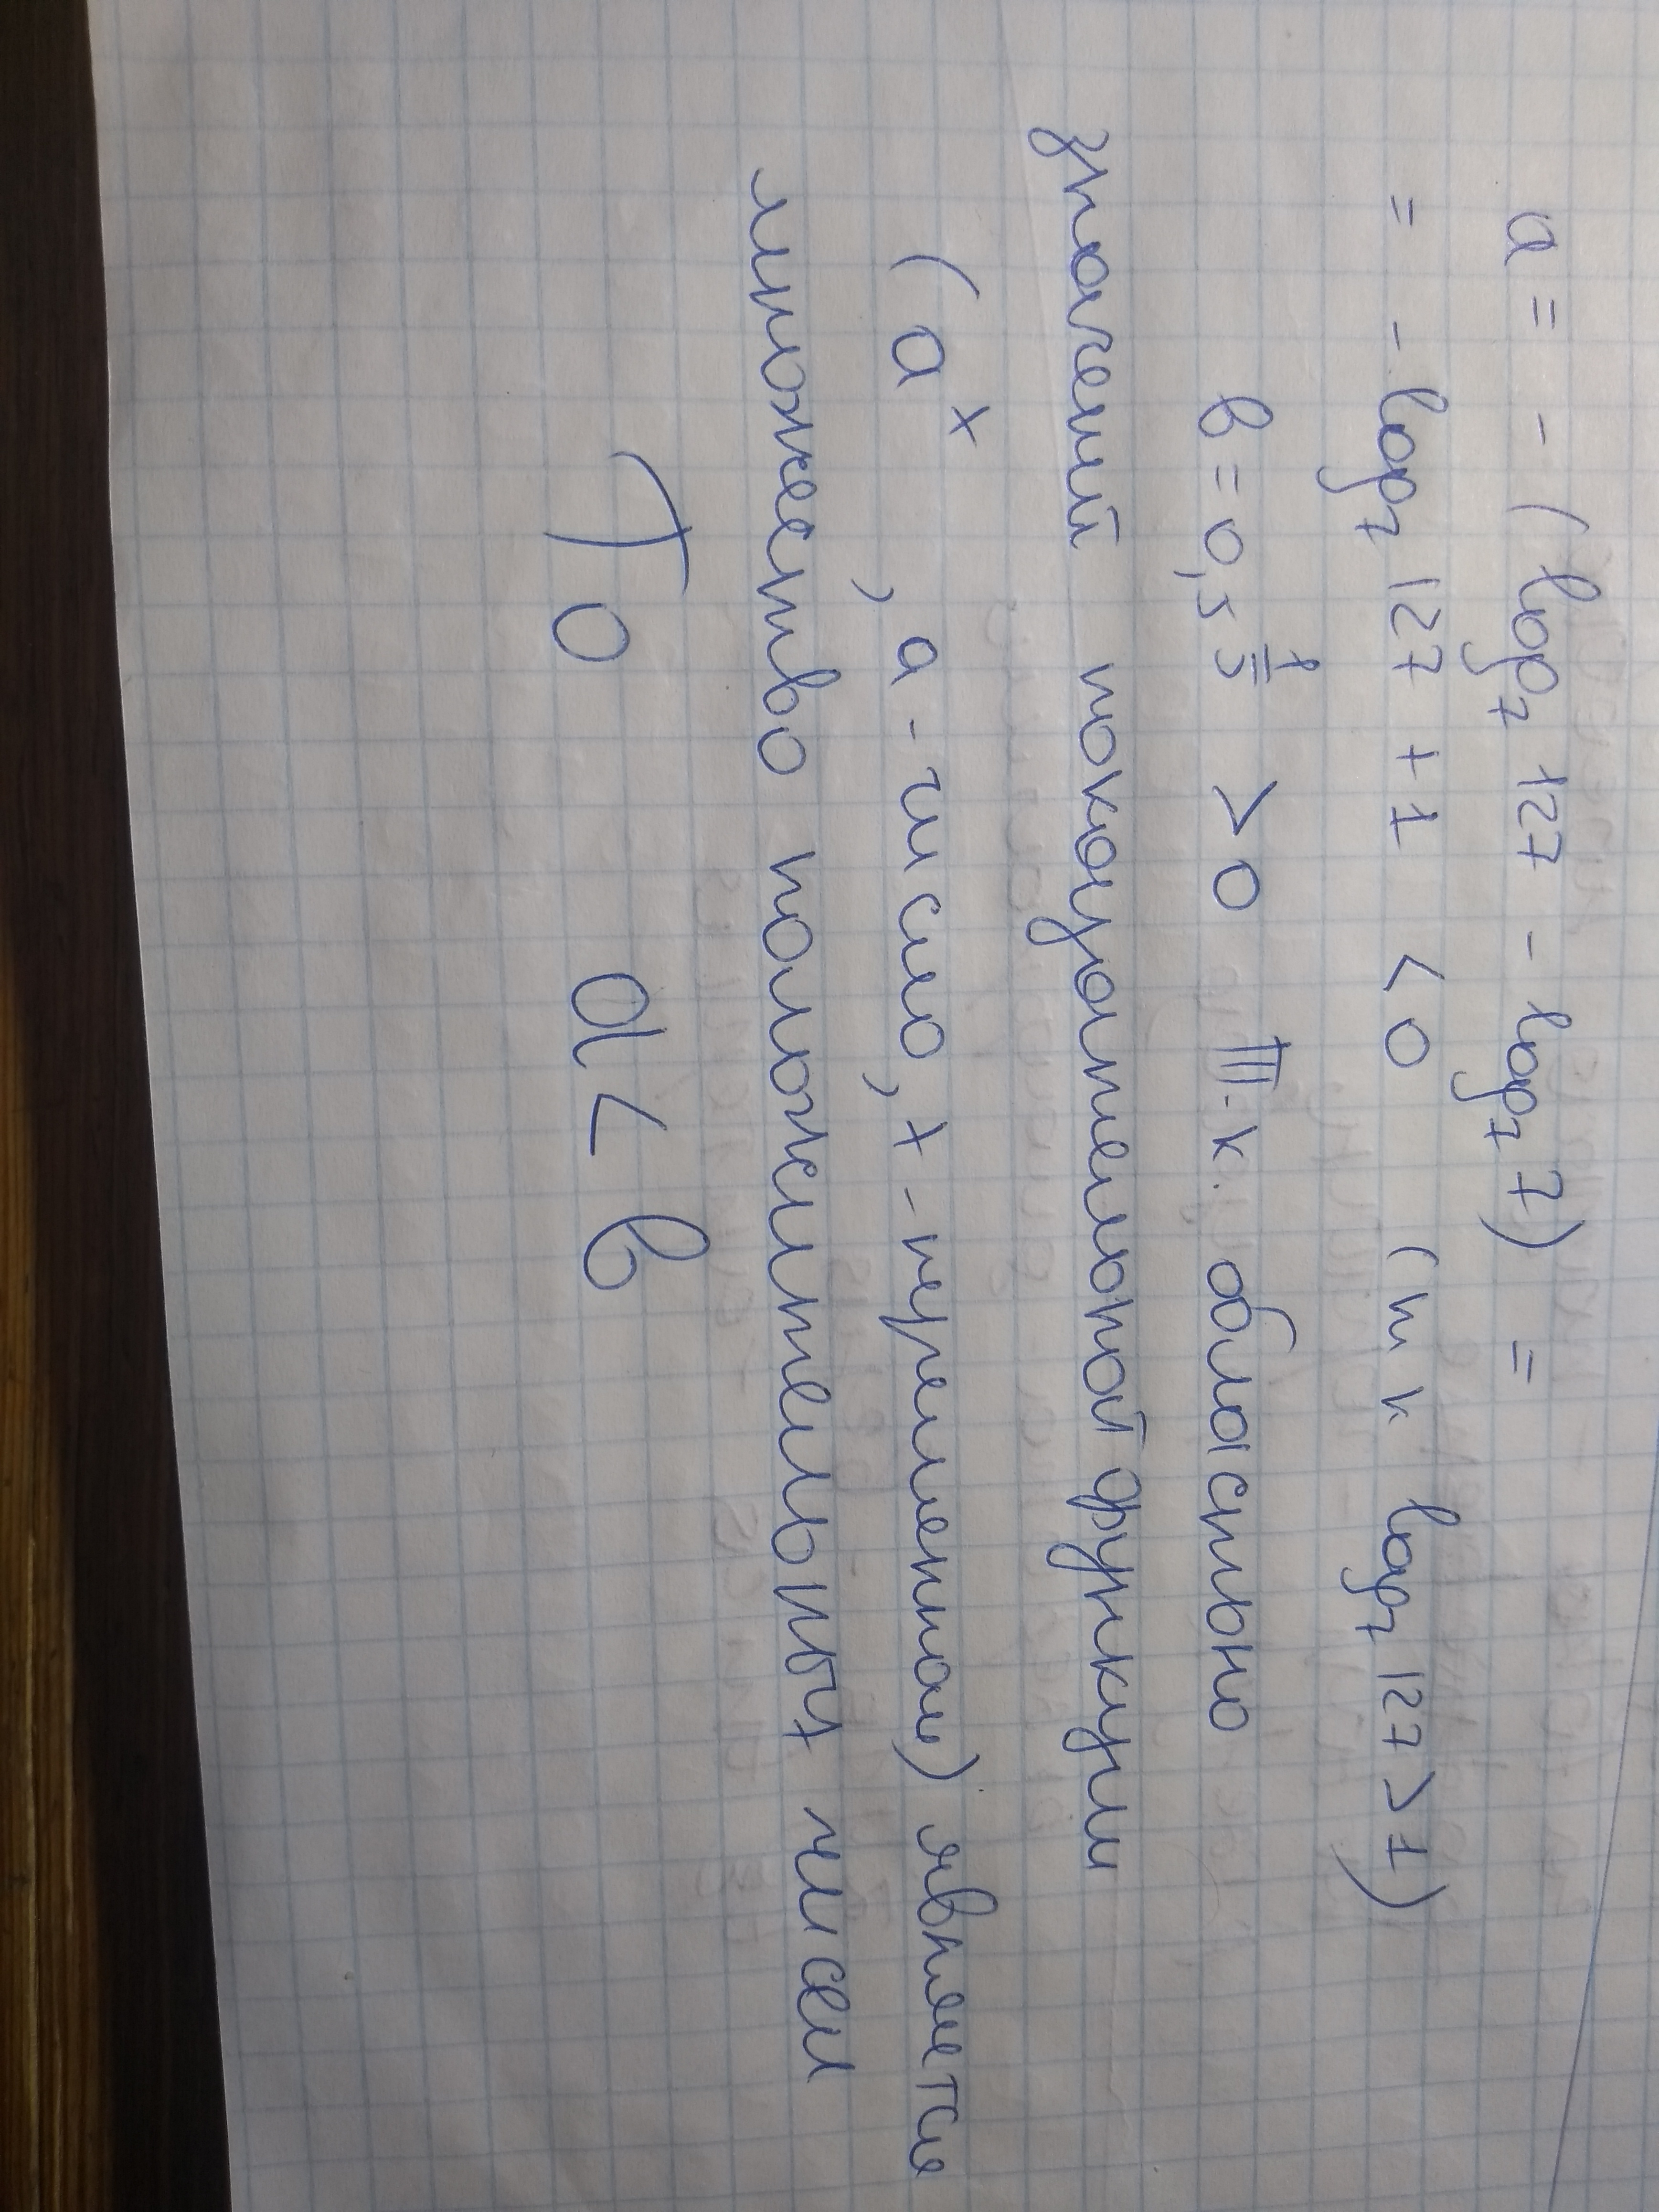 a = - (log₇ 127 - log₇ 7) =
= - log₇ 127 + 1 < 0 (т к log₇ 127 > 1)
в = 0,5 1/5 > 0 т-к. областью
значений показательной функции
(aˣ , a - число, x - переменная) является
множество положительных чисел
То a < в